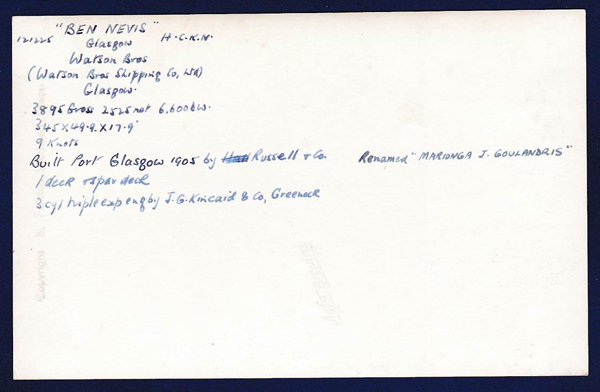 "BEN NEVIS"
121225 Glasgow H.C.K.N.
Watson Bros
(Watson Bros Shipping Co, Ltd)
Glasgow.
3895 Gross 2525 net 6,600 dw.
345 x 49.9 x 17.9'
9 Knots
Built Port Glasgow 1905 by Russell & Co. Renamed "MARIONGA J. GOULANDRIS"
1 deck & spar deck
3 cyl triple exp eng by J.G. Kincaid & Co, Greenock
Copyright